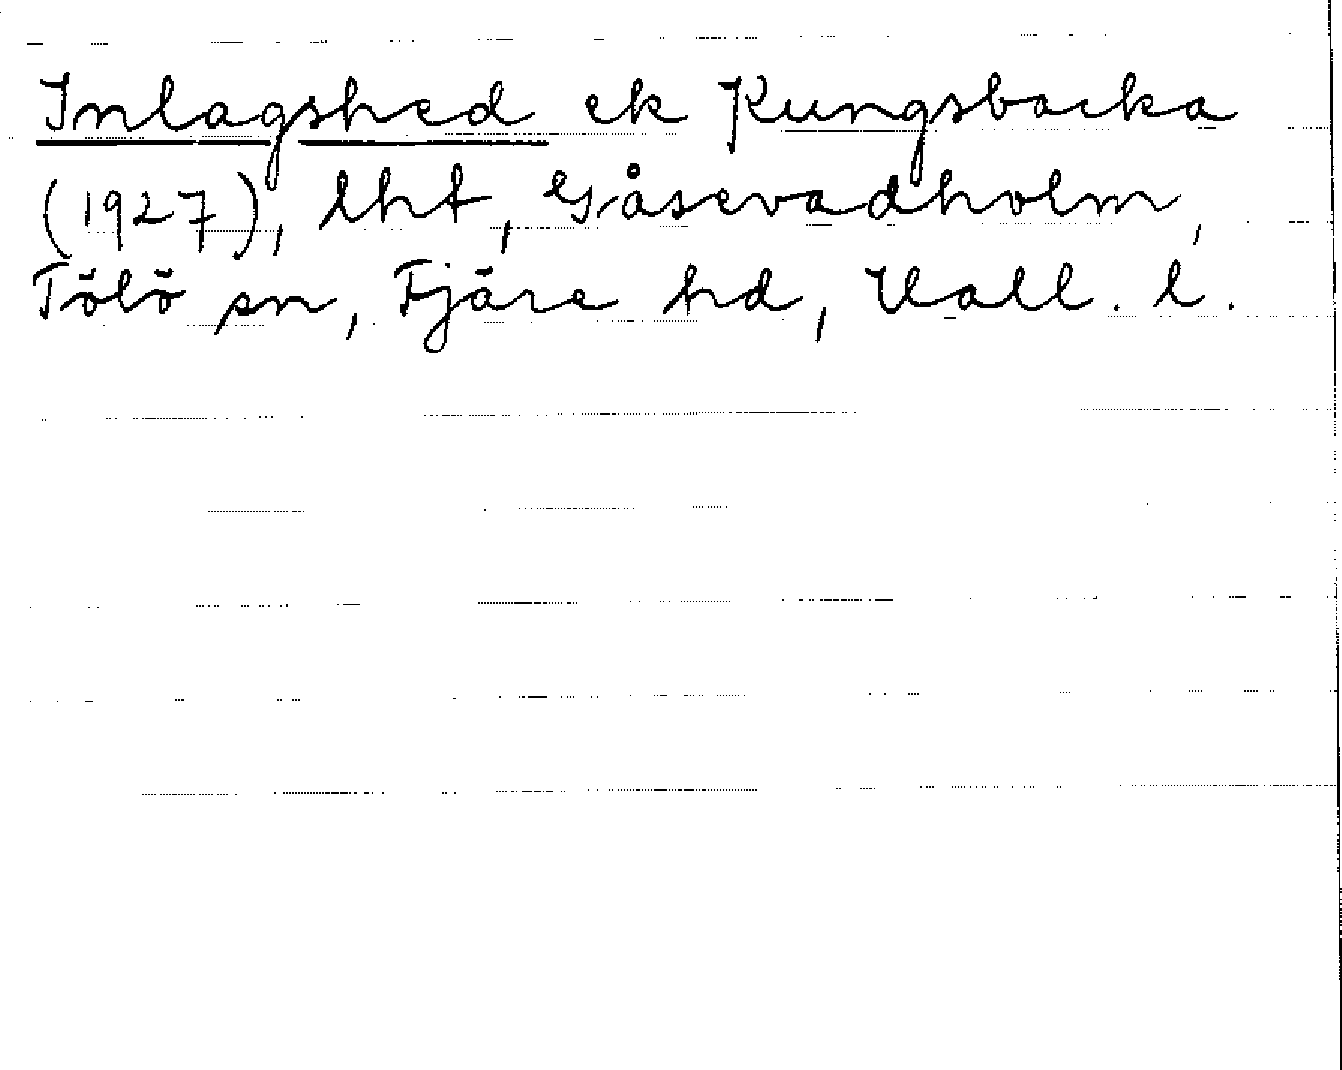 Inlagshed ek Kungsbacka
(1927), lht, Gåsevadholm,
Tölö sn, Fjäre hd, Hall. l.